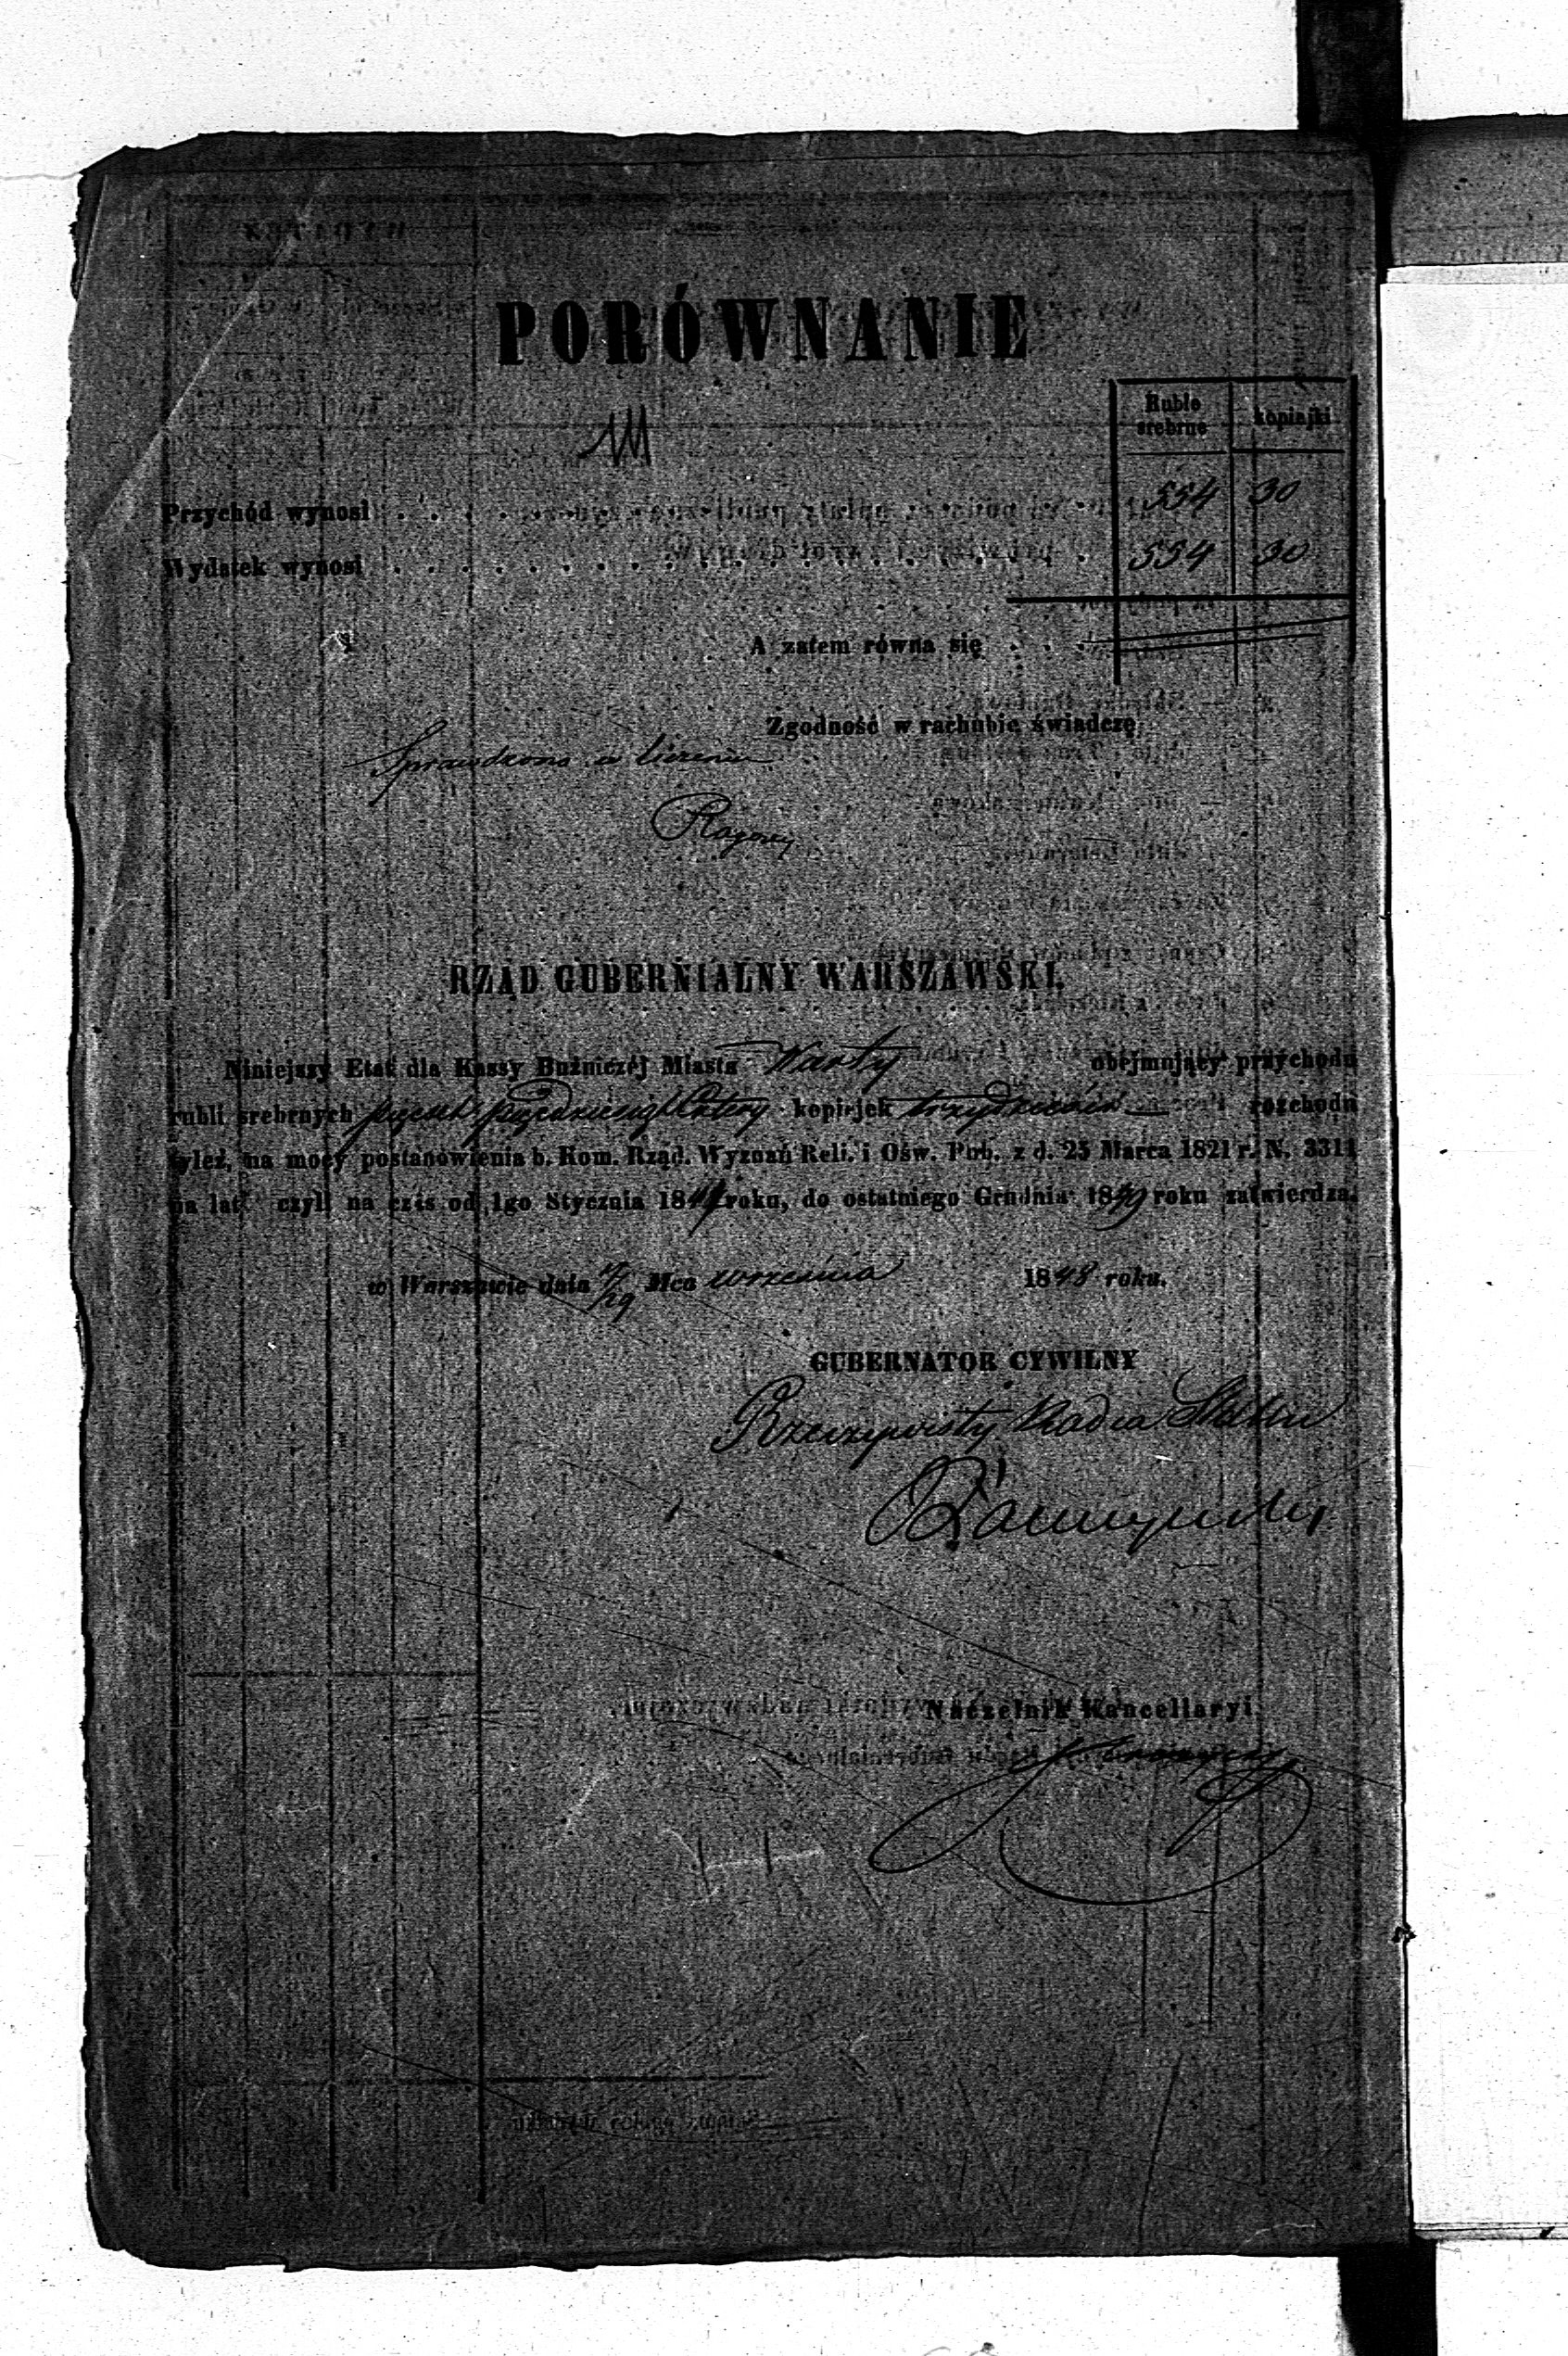 PORÓWNANIE
Ruble srebrne kopiejki
Przychód wynosi . . . . 554 30
Wydatek wynosi . . . . 554 30
A zatem równa się . . . .
Zgodność w rachubie świadczę
Sprawdzono w liczeniu
RZĄD GUBERNIALNY WARSZAWSKI.
Niniejszy Etat dla Kassy Bużniczéj Miasta Warty obejmujący przychodu
rubli srebrnych pięćset pięćdziesiąt cztery kopiejek trzydzieści rozchodu
tyleż, na mocy postanowienia b. Kom. Rząd. Wyznań Reli. i Ośw. Pub. z d. 25 Marca 1821 r. N. 3311
na lat czyli na czas od 1go Stycznia 184 roku, do ostatniego Grudnia 1849 roku zatwierdza.
w Warszawie dnia 17/29 Mca września 1848 roku.
GUBERNATOR CYWILNY
Rzeczywisty Radca Stanu
Naczelnik Kancellaryi